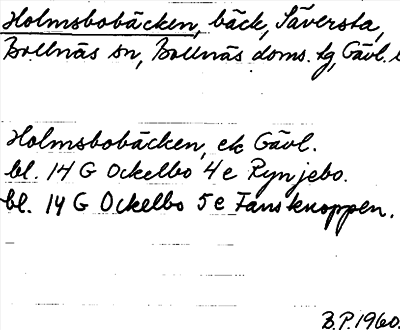 Holmsbobäcken, bäck, Säversta,
Bollnäs sn, Bollnäs doms. tg, Gävl. l
Holmsbobäcken, ek Gävl.
bl. 14 G Ockelbo 4e Rynjebo.
bl. 14 G Ockelbo 5e Fansknoppen.
B.P. 1960.